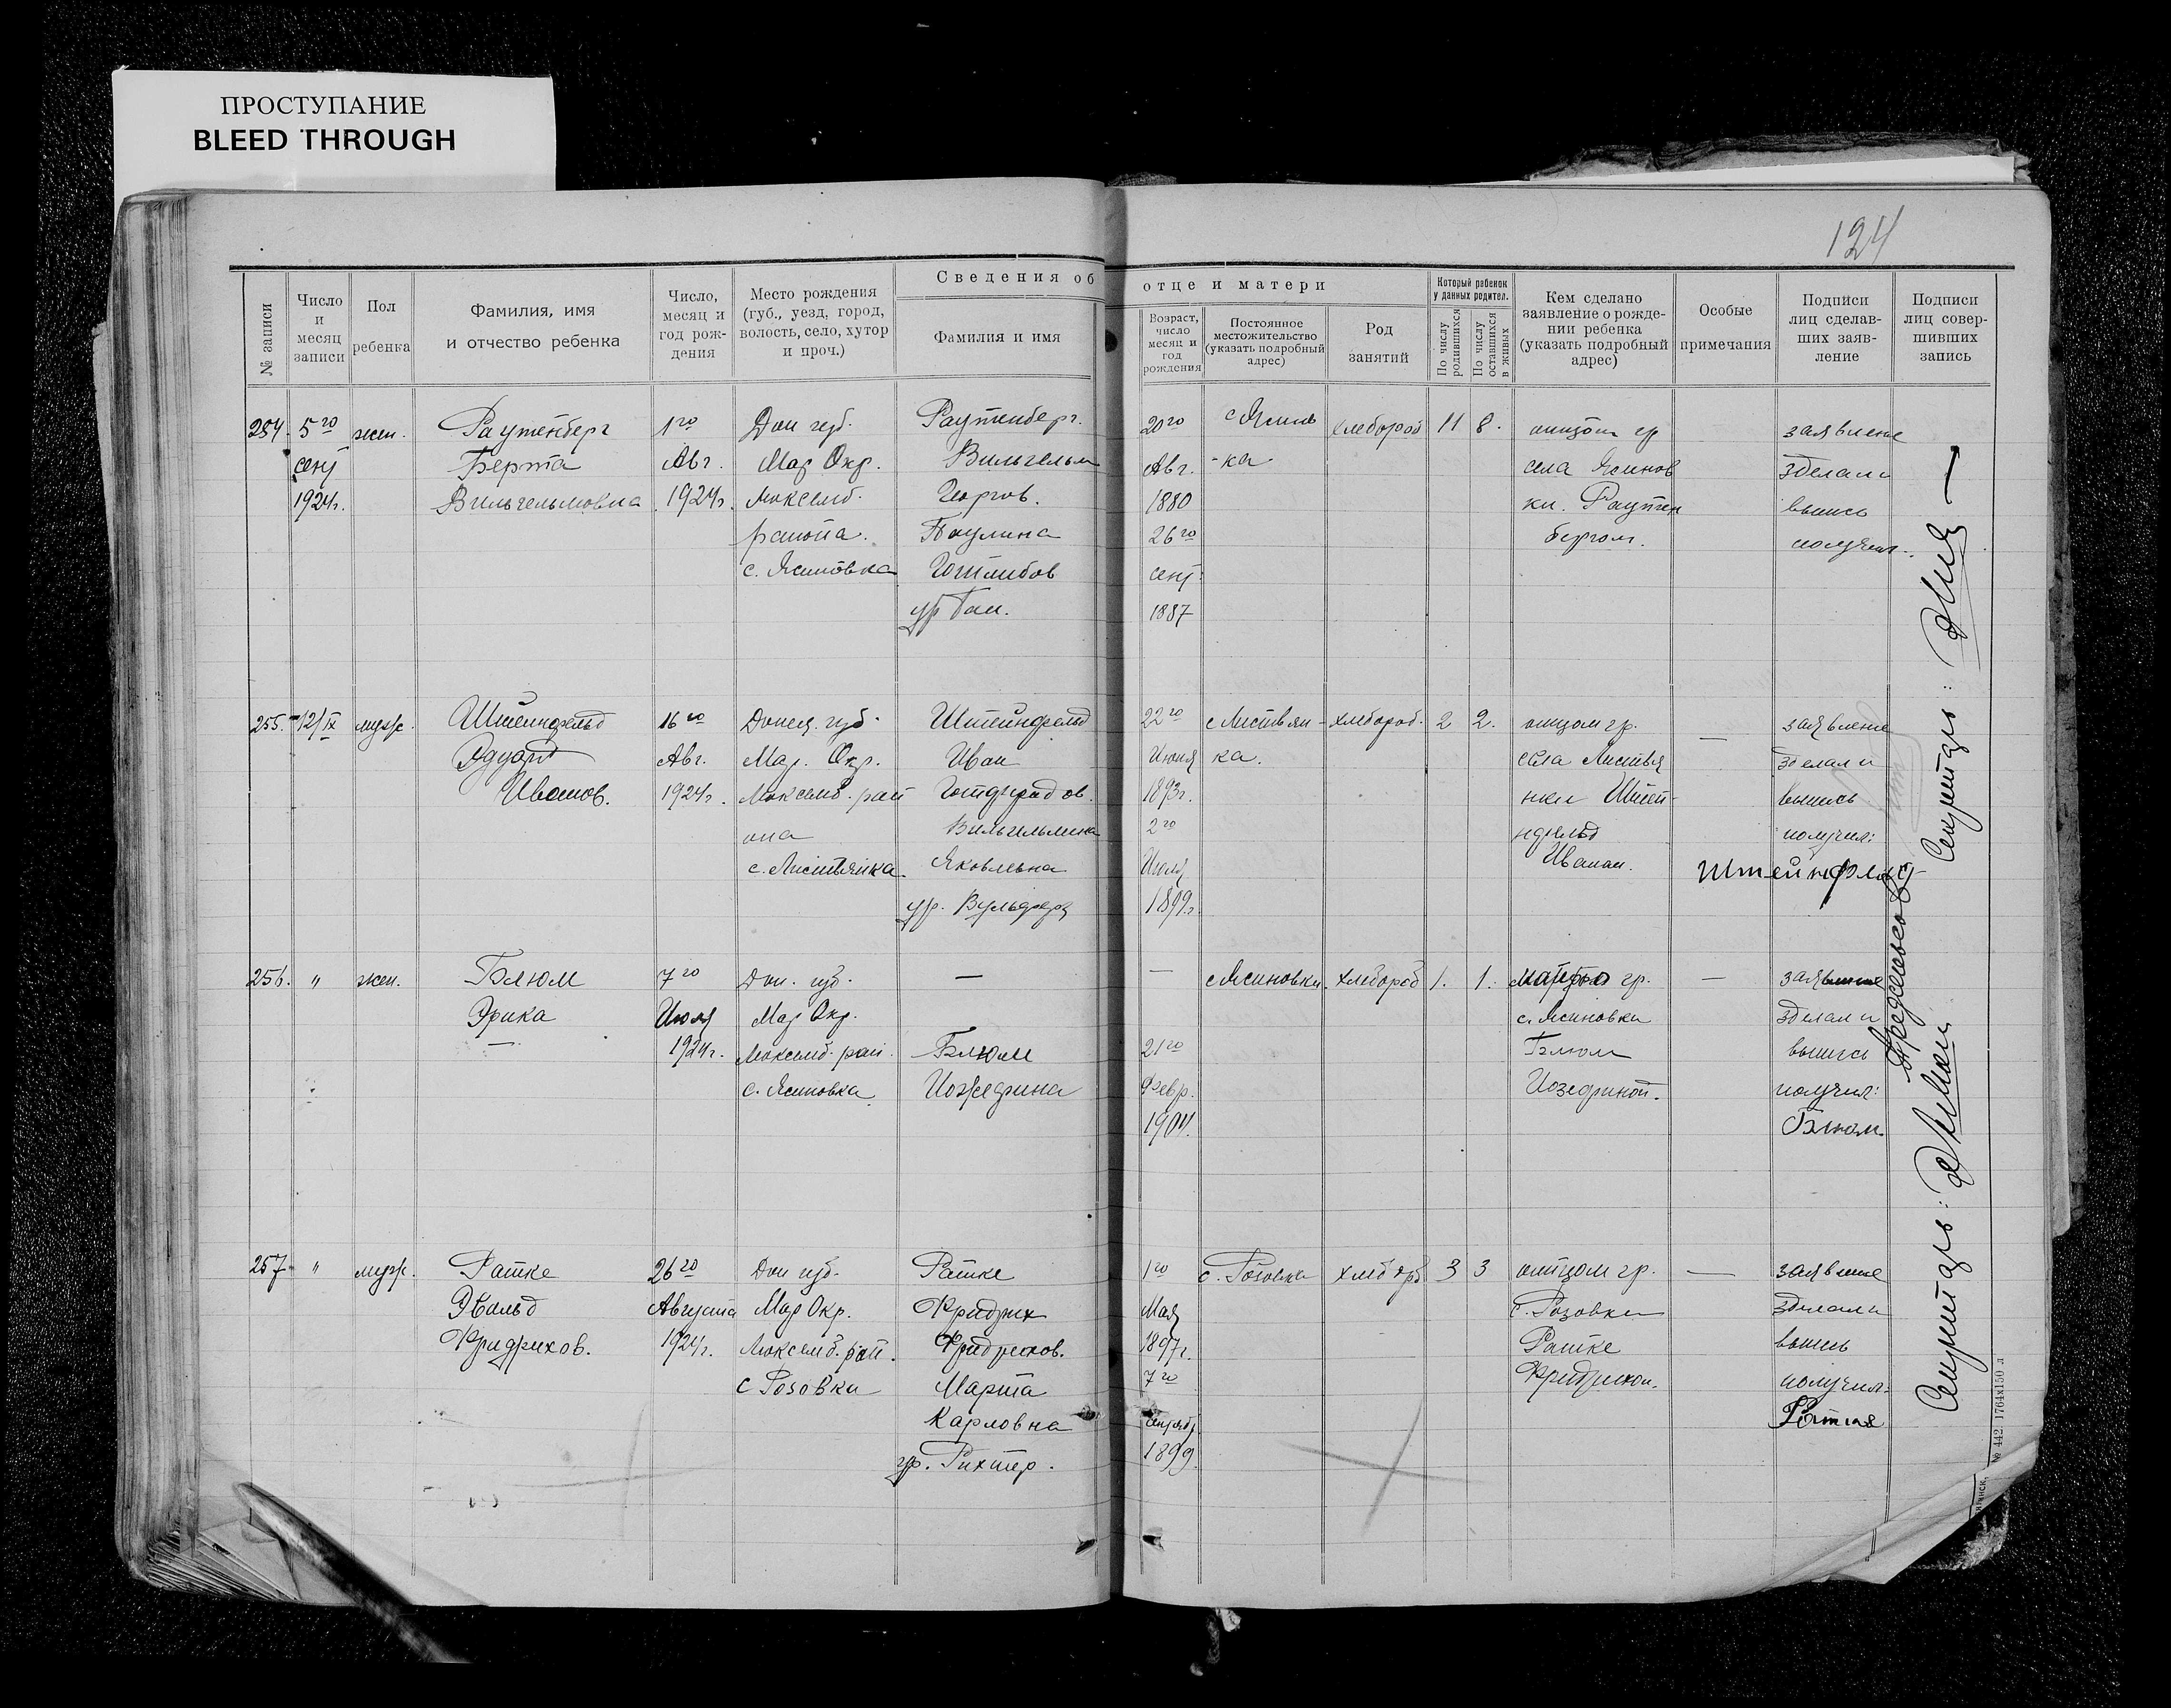 ПРОСТУПАНИЕ
BLEED THROUGH
124
Сведения об отце и матери
№ записи
Число и месяц записи
Пол ребенка
Фамилия, имя и отчество ребенка
Число, месяц и год рождения
Место рождения (губ., уезд, город, волость, село, хутор и проч.)
Фамилия и имя
Возраст, число месяц и год рождения
Постоянное местожительство (указать подробный адрес)
Род занятий
Который ребенок у данных родител.
По числу родившихся
По числу оставшихся в живых
Кем сделано заявление о рождении ребенка (указать подробный адрес)
Особые примечания
Подписи лиц сделавших заявление
Подписи лиц совершивших запись
254. 5го жен. Раутенберг 1го Дон губ. Раутенберг. 20го с Ясинов хлебороб 11 8. отцом гр заявление
сент Берта Авг. Мар Окр. Вильгельм Авг. -ка села Ясинов зделал и
1924г. Вильгельмовна 1924г. Люксемб. Георгов. 1880 ки. Раутен выпись
района. Паулина 26го бергом. получил.
с. Ясиновка Готлибов сент
ур Ган. 1887
255. 12/IX муж. Штейнфельд 16го Донец. губ. Штейнфельд 22го с Листвян- хлебороб. 2 2. отцом гр. заявление
Эдуард Авг. Мар. Окр. Иван Июня ка. — села Листвя зделал и
Иванов. 1924г. Люксемб. рай Готфридов. 1893г. нки Штей- выпись
она Вильгельмина 2го нфельд получил:
с. Листвянка. Яковлевна Июля Иваном.
ур. 1899г.
256. " жен. Блюм 7го Дон. губ. — — с Ясиновки. хлебороб 1. 1. гр. — заявление
Эрика Июля Мар Окр. с. Ясиновки зделал и
— 1924г. Люксемб. рай. Блюм 21го Блюм выпись
с. Ясиновка Иозефина Февр. Иозефиной. получил:
1904. Блюм.
257 " муж. Ратке 26го Дон губ. Ратке 1го с. Розовка хлебороб 3 3 отцом гр. — заявление
Эвальд Августа Мар Окр. Фридрих Мая с. Розовки зделал и
Фридрихов. 1924г. Люксемб. рай. Фридрихов. 1897г. Ратке выпись
с Розовка Марта 7го Фридрихом. получил.
Карловна
ур. Рихтер. 1899.
Секретарь:
Секретарь:
№ 442. 1764x150 л